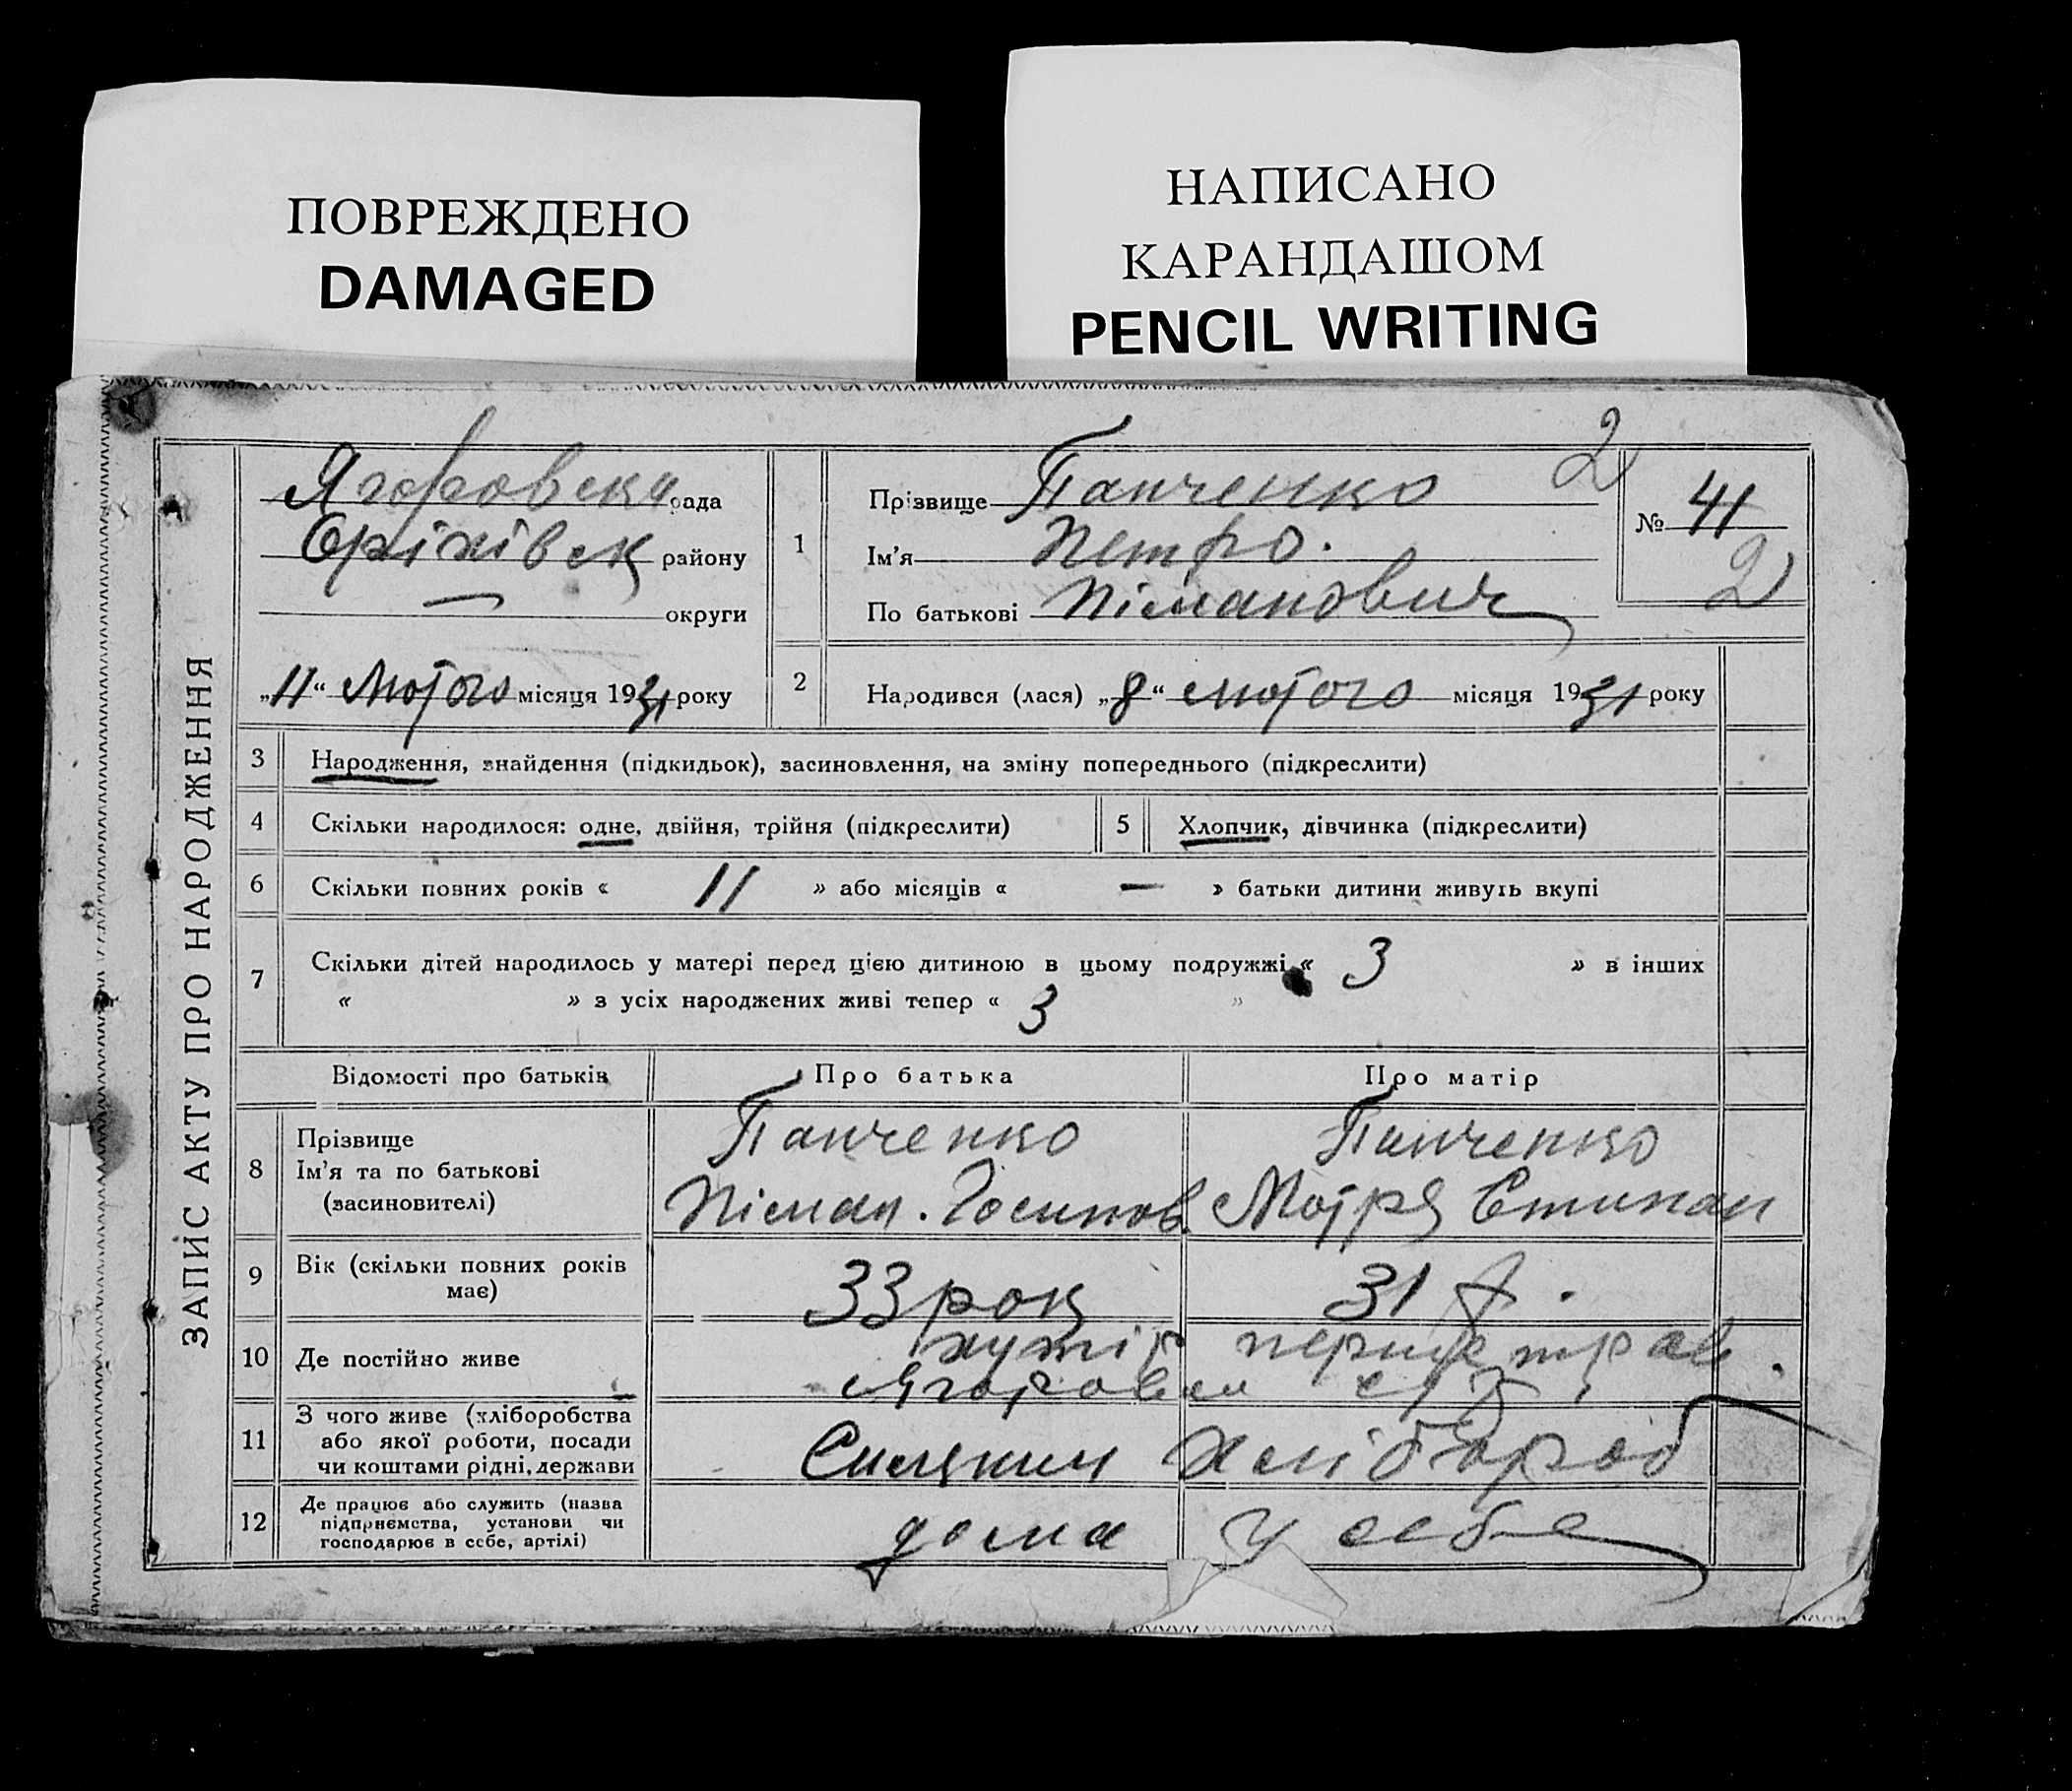 ПОВРЕЖДЕНО
DAMAGED
НАПИСАНО
КАРАНДАШОМ
PENCIL WRITING
ЗАПИС АКТУ ПРО НАРОДЖЕННЯ
Ягоровська рада
Оріхівськ району
— округи
„11“ Лютого місяця 1931 року
1
Прізвище Панченко
Ім'я Петро.
По батькові Піманович
2
№ 41
2
2 Народився (лася) „8“ лютого місяця 1931 року
3 Народження, знайдення (підкидьок), засиновлення, на зміну попереднього (підкреслити)
4 Скільки народилося: одне, двійня, трійня (підкреслити) 5 Хлопчик, дівчинка (підкреслити)
6 Скільки повних років « 11 » або місяців « — » батьки дитини живуть вкупі
7 Скільки дітей народилось у матері перед цією дитиною в цьому подружжі « 3 » в інших
« » з усіх народжених живі тепер « 3 »
Відомості про батьків Про батька Про матір
8 Прізвище
Ім'я та по батькові
(засиновителі)
Панченко
Піман. Йосипов.
Панченко
Мотря Степан
9 Вік (скільки повних років
має)
33 рок 31 р.
10 Де постійно живе
хутір перше трав.
Ягоровск с/р.
11 З чого живе (хліборобства
або якої роботи, посади
чи коштами рідні, держави
Селянин Хлібороб
12 Де працює або служить (назва
підприємства, установи чи
господарює в себе, артілі)
дома у себе